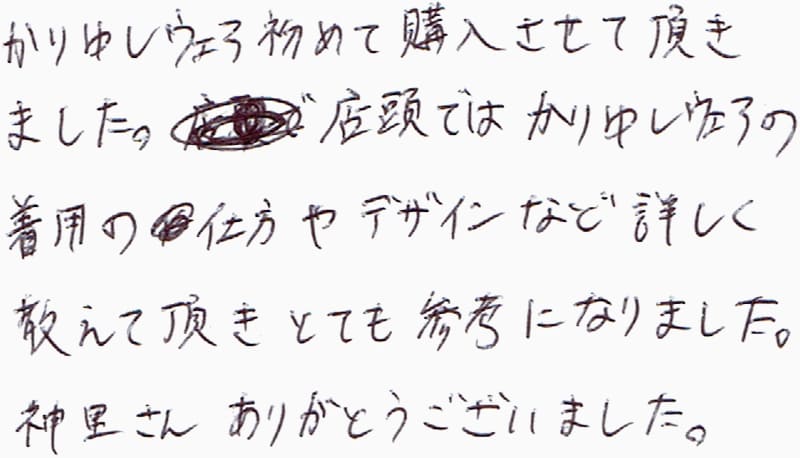 かりゆしウェア初めて購入させて頂き
ました。店頭ではかりゆしウェアの
着用の仕方やデザインなど詳しく
教えて頂きとても参考になりました。
神里さんありがとうございました。